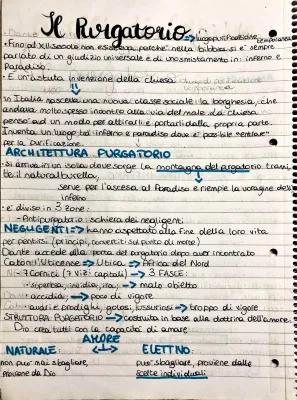 Il Purgatorio → luogo purificazione temporanea
• Fino al XII secolo non esisteva, perché nella bibbia si è sempre
parlato di un giudizio universale e di uno smistamento in: inferno e
Paradiso
• È un'astuta invenzione della chiesa
in Italia nasceva una nuova classe sociale: la borghesia, che
andava molto spesso incontro alla via del male. La chiesa
pensò ad un modo per attirarli e portarli dalla propria parte.
Inventa un luogo tra inferno e paradiso dove è possibile
per la purificazione.
ARCHITETTURA PURGATORIO
• si arriva in un isola dove sorge la montagna del purgatorio tramite
il natural burella,
serve per l'ascesa al Paradiso e riempie la voragine dell'
inferno
• è diviso in 3 zone:
- Antipurgatorio: schiera dei negligenti
NEGLIGENTI ⇒ hanno aspettato alla fine della loro vita
per pentirsi (principi, convertiti sul punto di morte)
Dante accede alla porta del purgatorio dopo aver incontrato
Catone l'Uticense → Utica → Africa del Nord
7 Cornici (7 vizi capitali) → 3 FASCE:
• superbia, invidia, ira → malo obietto
• accidia, → poco di vigore
• avari e prodighi, golosi, lussuriosi → troppo di vigore
STRUTTURA PURGATORIO → costruita in base alla dottrina dell'amore.
Dio crea tutti con la capacità di amare
AMORE
NATURALE: ELETTIVO:
non può mai sbagliare, può sbagliare, proviene dalle
proviene da Dio scelte individuali